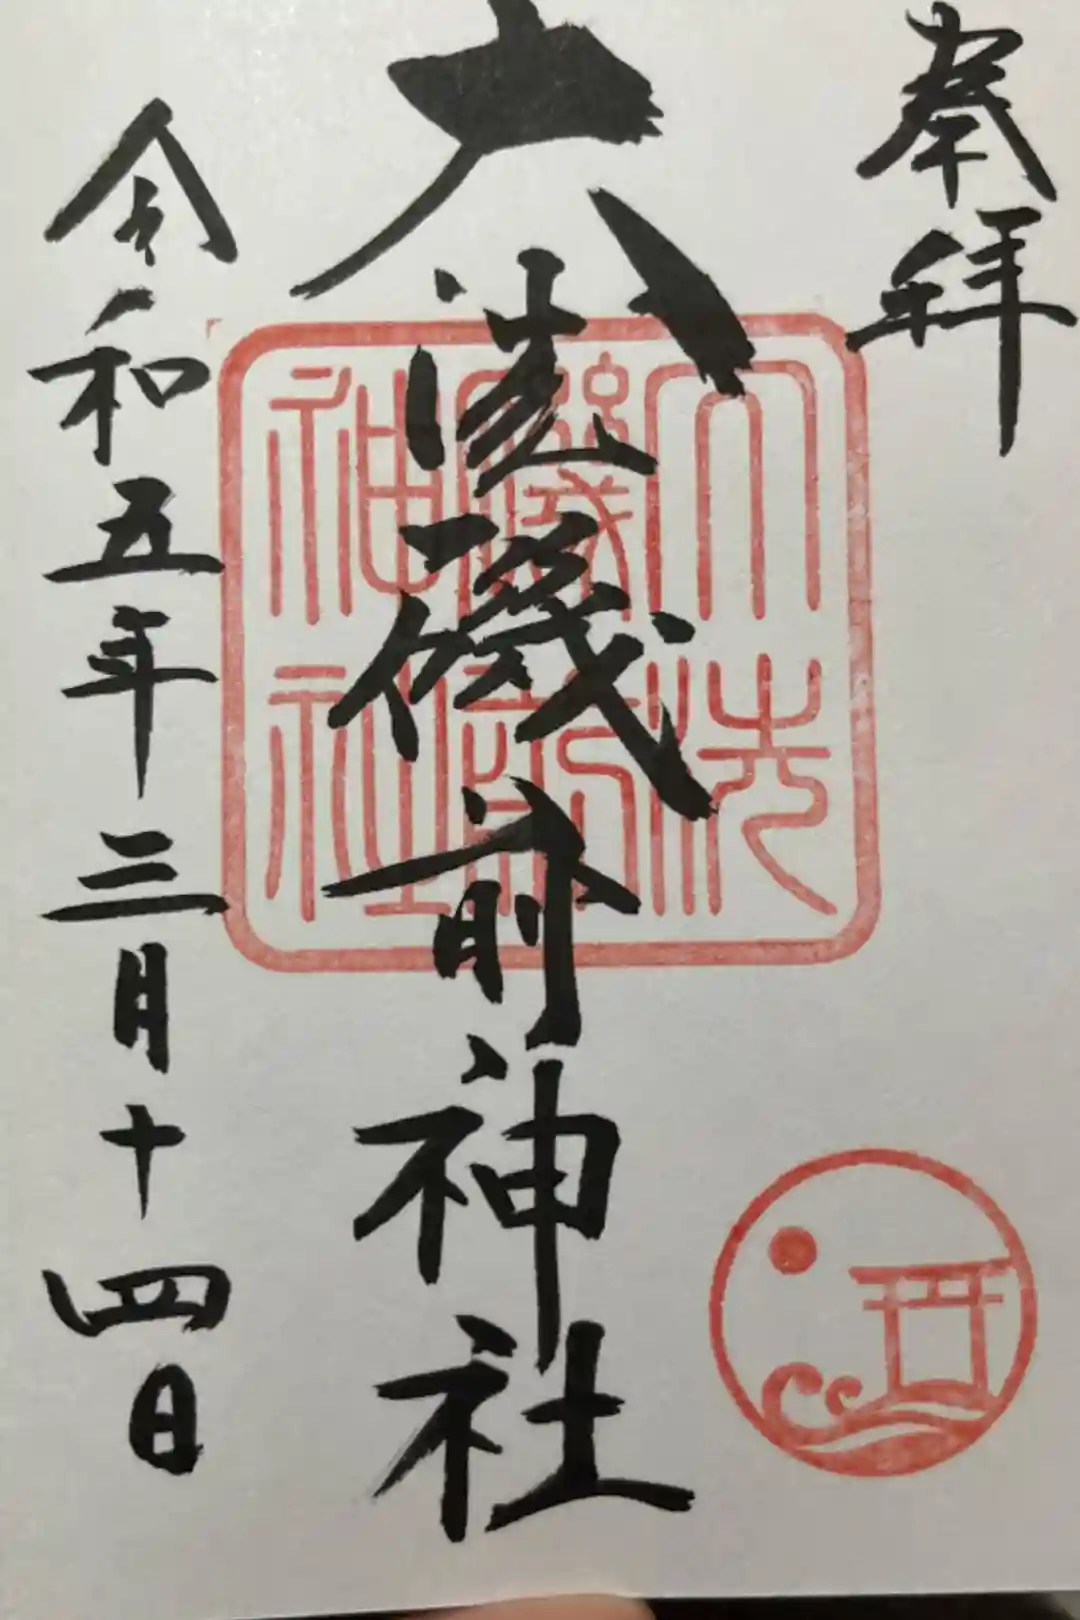 奉拝
大洗磯前神社
令和五年三月十四日
大洗
磯前
神社